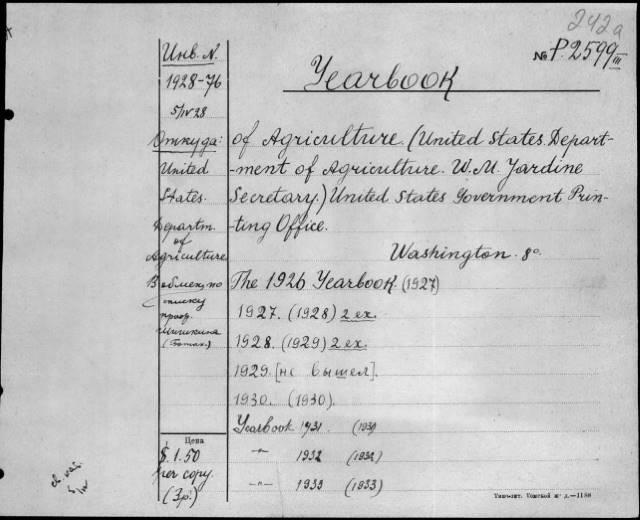 242a
№ P.2599 III
Yearbook
Инв. N.
1928-76
5/IV 28
Откуда:
United
States.
Departm.
of
Agriculture
В обмен, по
списку
проф.
Шишкина
(Ботан.)
of Agriculture. (United States. Depart-
-ment of Agriculture. W.M. Jardine
Secretary.) United States Government Prin-
-ting Office.
Washington. 8°.
The 1926 Yearbook. (1927)
1927. (1928) 2 ex.
1928. (1929) 2 ex.
1929. [не вышел].
1930. (1930).
Yearbook 1931 (1931)
-"- 1932 (1932)
-"- 1933 (1933)
Цена
$ 1.50
per copy.
(3 р.)
Типо-лит. Томской ж. д.—1188